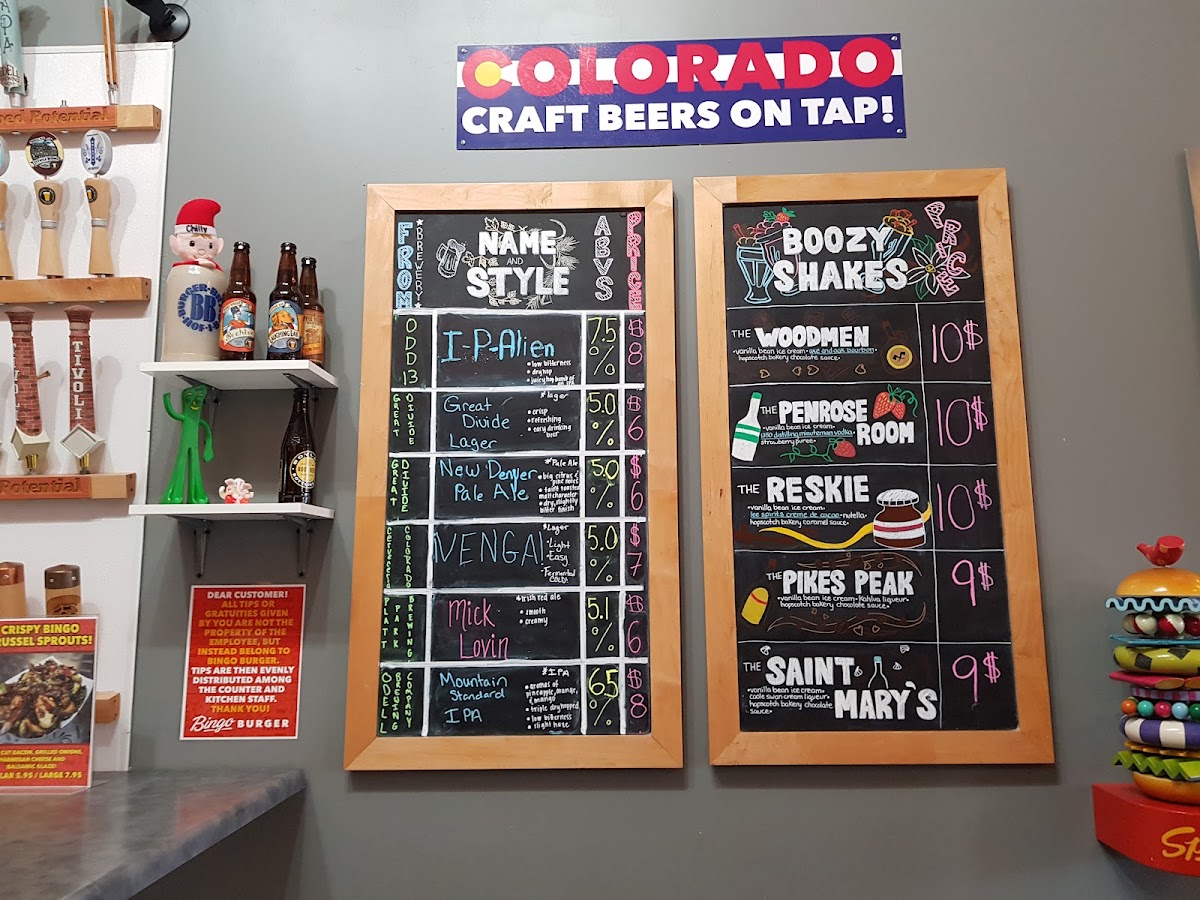 COLORADO
CRAFT BEERS ON TAP!
FROM
BREWERY
NAME
AND
STYLE
ABVS
PRICE
ODD 13
I-P-Alien
• low bitterness
• dry hop
7.5
%
$
8
GREAT DIVIDE
Great
Divide
Lager
*lager
• crisp
• refreshing
• easy drinking
beer
5.0
%
$
6
GREAT DIVIDE
New Denver
Pale Ale
*Pale Ale
• big citrus &
pine notes
• faint roasted
malt character
• dry, slightly
bitter finish
5.0
%
$
6
CERVECERIA COLORADO
¡VENGA!
*Lager
•Light
•Easy
•Fermented
Cold
5.0
%
$
7
PLATT PARK BREWING
Mick
Lovin
*Irish red ale
• smooth
• creamy
5.1
%
$
6
ODELL BREWING COMPANY
Mountain
Standard
IPA
*IPA
• aromas of
pineapple, orange,
& mango
• triple dry hopped
• low bitterness
• slight haze
6.5
%
$
8
BOOZY
SHAKES
PRICE
THE WOODMEN
•vanilla bean ice cream• axe and oak bourbon•
hopscotch bakery chocolate sauce•
10$
THE PENROSE
ROOM
•vanilla bean ice cream•
distilling minuteman vodka•
strawberry puree•
10$
THE RESKIE
•vanilla bean ice cream•
lee spirits creme de cacao• nutella•
hopscotch bakery caramel sauce•
10$
THE PIKES PEAK
•vanilla bean ice cream• Kahlua liqueur•
hopscotch bakery chocolate sauce•
9$
THE SAINT
MARY'S
•vanilla bean ice cream•
coole swan cream liqueur•
hopscotch bakery chocolate
sauce•
9$
Chilly
BURGER-BRAU
BB
HOF-
TIVOLI
Potential
Potential
DEAR CUSTOMER!
ALL TIPS OR
GRATUITIES GIVEN
BY YOU ARE NOT THE
PROPERTY OF THE
EMPLOYEE, BUT
INSTEAD BELONG TO
BINGO BURGER.
TIPS ARE THEN EVENLY
DISTRIBUTED AMONG
THE COUNTER AND
KITCHEN STAFF.
THANK YOU!
Bingo BURGER
CRISPY BINGO
SPROUTS!
CUT BACON, GRILLED ONIONS,
PARMESAN CHEESE AND
BALSAMIC GLAZE!
5.95 / LARGE 7.95
Sp